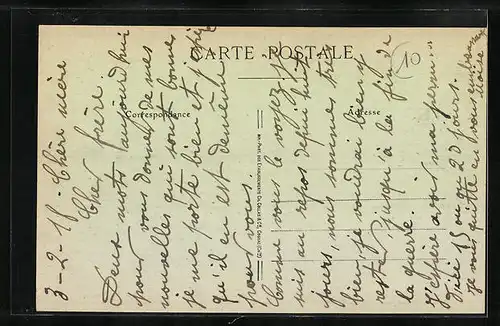 CARTE POSTALE
Correspondance
Adresse
10
3-2-18. Chère mère
Cher frère.
Deux mots aujourd'hui
pour vous donner de mes
nouvelles qui sont bonnes
je me porte bien et j'espère
qu'il en est de même
pour vous.
Comme vous le voyez je
suis au repos depuis huit
jours, nous sommes très
bien, je voudrai bien y
rester jusqu'à la fin de
la guerre.
J'espère avoir ma permis
d'ici 15 ou 20 jours.
je vous quitte en vous embrassant